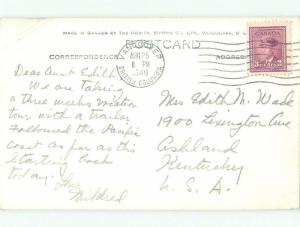 MADE IN CANADA BY THE GOWEN, SUTTON CO. LTD., VANCOUVER, B.
POSTCARD
CORRESPONDENCE
ADDRESS
VANCOUVER
AUG 25
8 PM
1948
BRITISH COLUMBIA
CANADA
3 3
Dear Aunt Edith:
We are taking
a three weeks vacation
tour with a trailer.
Followed the Pacific
coast as far as this
starting back
today. Love
Mildred
Mrs Edith N. Wade
1900 Lexington Ave
Ashland
Kentucky
U. S. A.